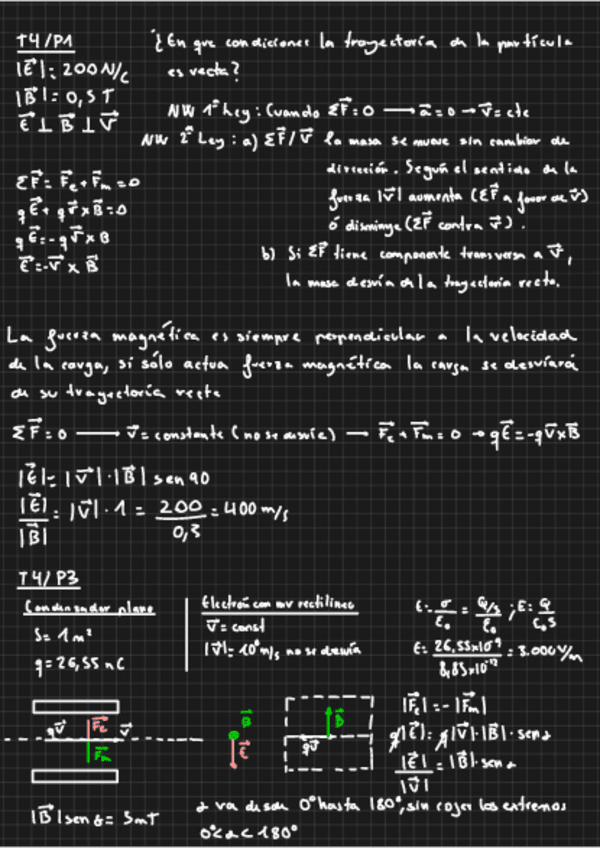 T4/P1
¿En que condiciones la trayectoria de la partícula
es recta?
|E⃗|: 200 N/C
|B⃗|: 0,5 T
E⃗ ⊥ B⃗ ⊥ V⃗
NW 1ª Ley: Cuando ΣF⃗=0 → a⃗=0 → v⃗=cte
NW 2ª Ley: a) ΣF⃗/v⃗ la masa se mueve sin cambiar de
dirección. Según el sentido de la
fuerza |v⃗| aumenta (ΣF⃗ a favor de v⃗)
ó disminuye (ΣF⃗ contra v⃗).
b) Si ΣF⃗ tiene componente transversa a v⃗,
la masa desvía de la trayectoria recta.
ΣF⃗ = F⃗e + F⃗m = 0
qE⃗ + qv⃗ x B⃗ = 0
qE⃗ = -qv⃗ x B
E⃗ = -v⃗ x B⃗
La fuerza magnética es siempre perpendicular a la velocidad
de la carga, si sólo actua fuerza magnética la carga se desviará
de su trayectoria recta
ΣF⃗=0 → v⃗=constante (no se desvía) → F⃗e + F⃗m = 0 → qE⃗=-qv⃗xB⃗
|E⃗|= |v⃗|·|B⃗| sen 90
|E⃗|/|B⃗| = |v⃗|·1 = 200/0,5 = 400 m/s
T4/P3
Condensador plano
S= 1 m²
q= 26,55 nC
Electrón con mv rectilíneo
v⃗= const
|v⃗|= 10⁶ m/s no se desvía
E: σ/ε₀ = Q/s/ε₀ ; E: Q/ε₀s
E= 26,55x10⁻⁹/8,85x10⁻¹² = 3.000 V/m
qv⃗ F⃗e v⃗
F⃗m
B⃗
E⃗
B⃗
qv⃗
|F⃗e| = -|F⃗m|
q|E⃗|: q|v⃗|·|B⃗|·sen α
|E⃗|/|v⃗| = |B⃗|·sen α
|B⃗| sen α = 3mT
α va desde 0° hasta 180°, sin coger los extremos
0°<α<180°